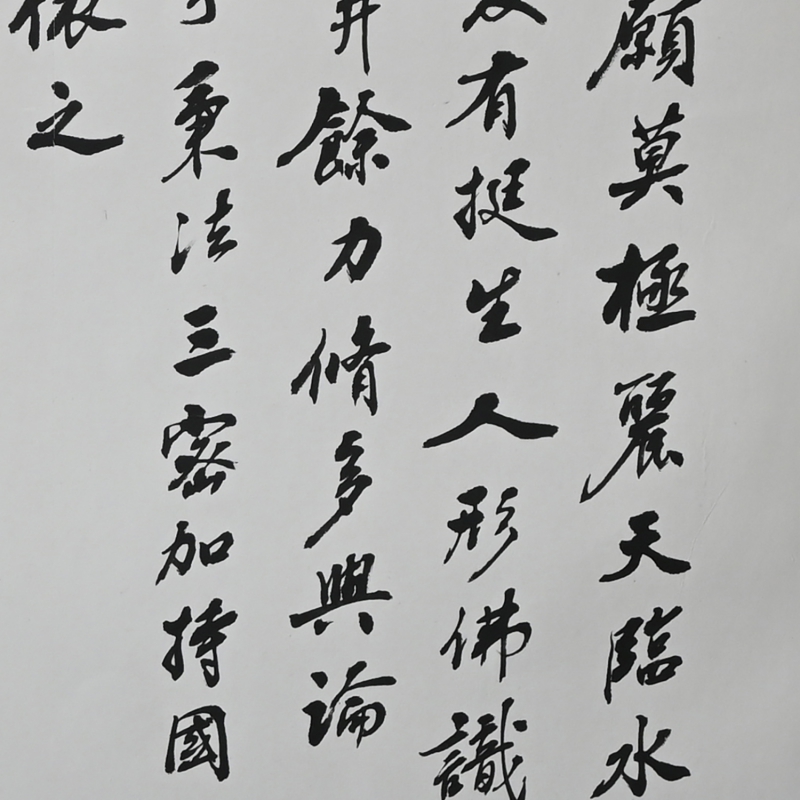 願莫極麗天臨水
及有挺生人形佛識
井餘力脩多與論
秉法三密加持國
依之